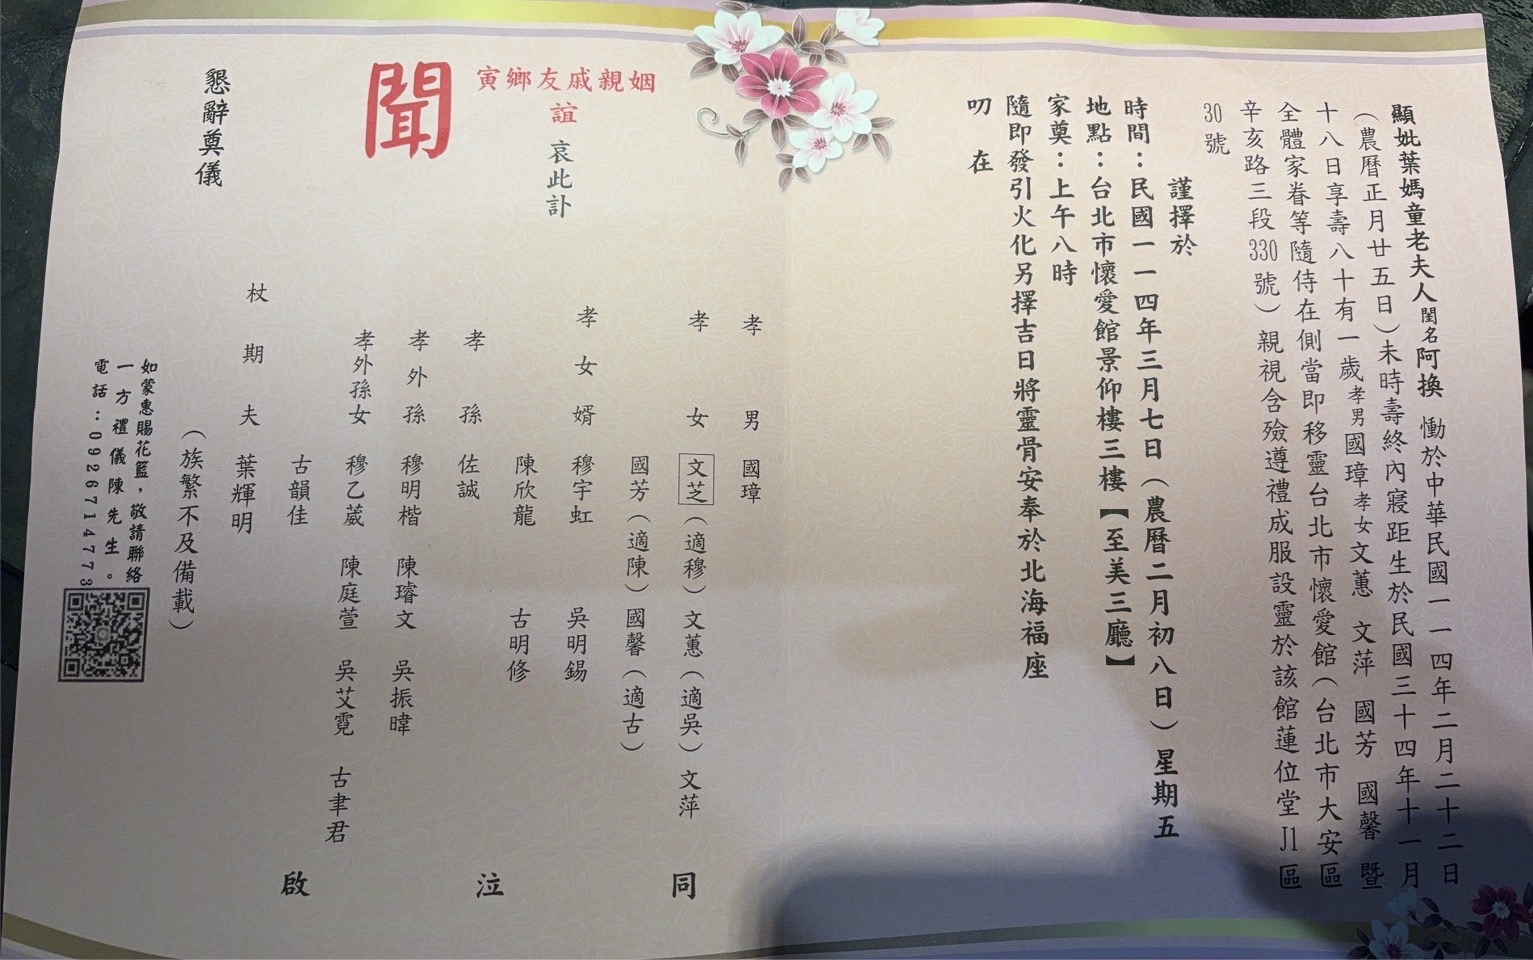 顯妣葉媽童老夫人閨名阿換 慟於中華民國一一四年二月二十二日
（農曆正月廿五日）未時壽終內寢距生於民國三十四年十一月
十八日享壽八十有一歲孝男國璋孝女文蕙 文萍 國芳 國馨 暨
全體家眷等隨侍在側當即移靈台北市懷愛館（台北市大安區
辛亥路三段330號）親視含殮遵禮成服設靈於該館蓮位堂J1區
30號
謹擇於
時間：民國一一四年三月七日（農曆二月初八日）星期五
地點：台北市懷愛館景仰樓三樓【至美三廳】
家奠：上午八時
隨即發引火化另擇吉日將靈骨安奉於北海福座
叨 在
姻親戚友鄉寅
誼
哀此訃
聞
懇辭奠儀
孝男 國璋
孝女 文芝（適穆）文蕙（適吳）文萍
國芳（適陳）國馨（適古）
孝女婿 穆宇虹 吳明錫
陳欣龍 古明修
孝孫 佐誠
孝外孫 穆明楷 陳璿文 吳振暐
孝外孫女 穆乙葳 陳庭萱 吳艾霓 古聿君
古韻佳
杖期夫 葉輝明
（族繁不及備載）
同 泣 啟
如蒙惠賜花籃，敬請聯絡
一方禮儀陳先生。
電話：0926714773